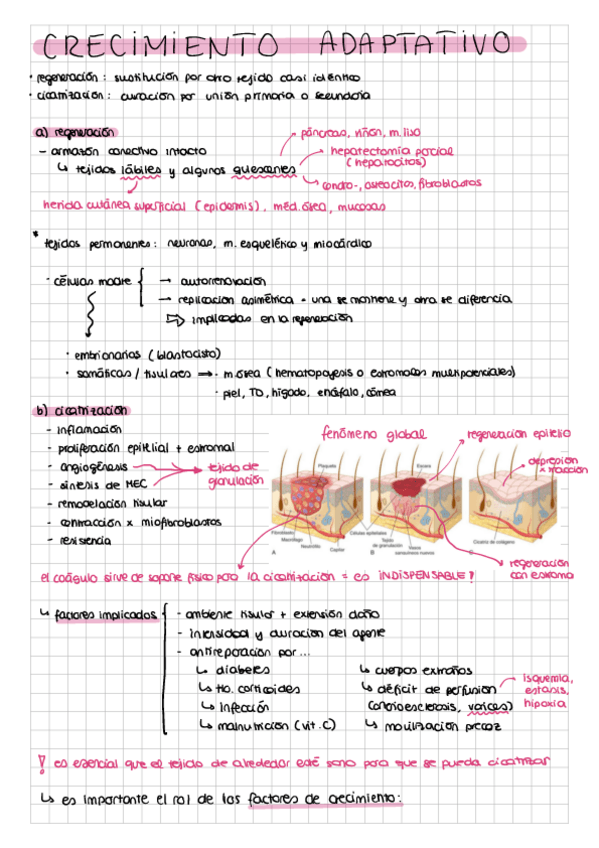 CRECIMIENTO ADAPTATIVO
· regeneración: sustitución por otro tejido casi idéntico
· cicatrización: curación por unión primaria o secundaria
a) regeneración
- armazón conectivo intacto
↳ tejidos lábiles y algunos quiescentes
páncreas, riñón, m. liso
hepatectomía parcial
(hepatocitos)
condro-, osteocitos, fibroblastos
herida cutánea superficial (epidermis), méd. ósea, mucosas
* tejidos permanentes: neuronas, m. esquelético y miocárdico
· células madre { → autorrenovación
→ replicación asimétrica = una se mantiene y otra se diferencia
⇨ implicadas en la regeneración
· embrionarias (blastocisto)
· somáticas / tisulares → · m. ósea (hematopoyesis o estromales multipotenciales)
· piel, TD, hígado, encéfalo, córnea
b) cicatrización
- inflamación
- proliferación epitelial + estromal
- angiogénesis
- síntesis de MEC
→ tejido de
granulación
- remodelación tisular
- contracción x miofibroblastos
- resistencia
fenómeno global
regeneración epitelio
depresión
x tracción
Plaqueta
Escara
Fibroblasto
Macrófago
Neutrófilo
Capilar
Células epiteliales
Tejido
de granulación
Vasos
sanguíneos nuevos
Cicatriz de colágeno
A
B
C
regeneración
con estroma
el coágulo sirve de soporte físico para la cicatrización = es INDISPENSABLE!
↳ factores implicados { - ambiente tisular + extensión daño
- intensidad y duración del agente
- antireparación por...
↳ diabetes
↳ tto. corticoides
↳ infección
↳ malnutrición (vit. C)
↳ cuerpos extraños
↳ déficit de perfusión
(arterioesclerosis, varices)
isquemia,
estasis,
hipoxia
↳ movilización precoz
! es esencial que el tejido de alrededor esté sano para que se pueda cicatrizar
↳ es importante el rol de los factores de crecimiento: